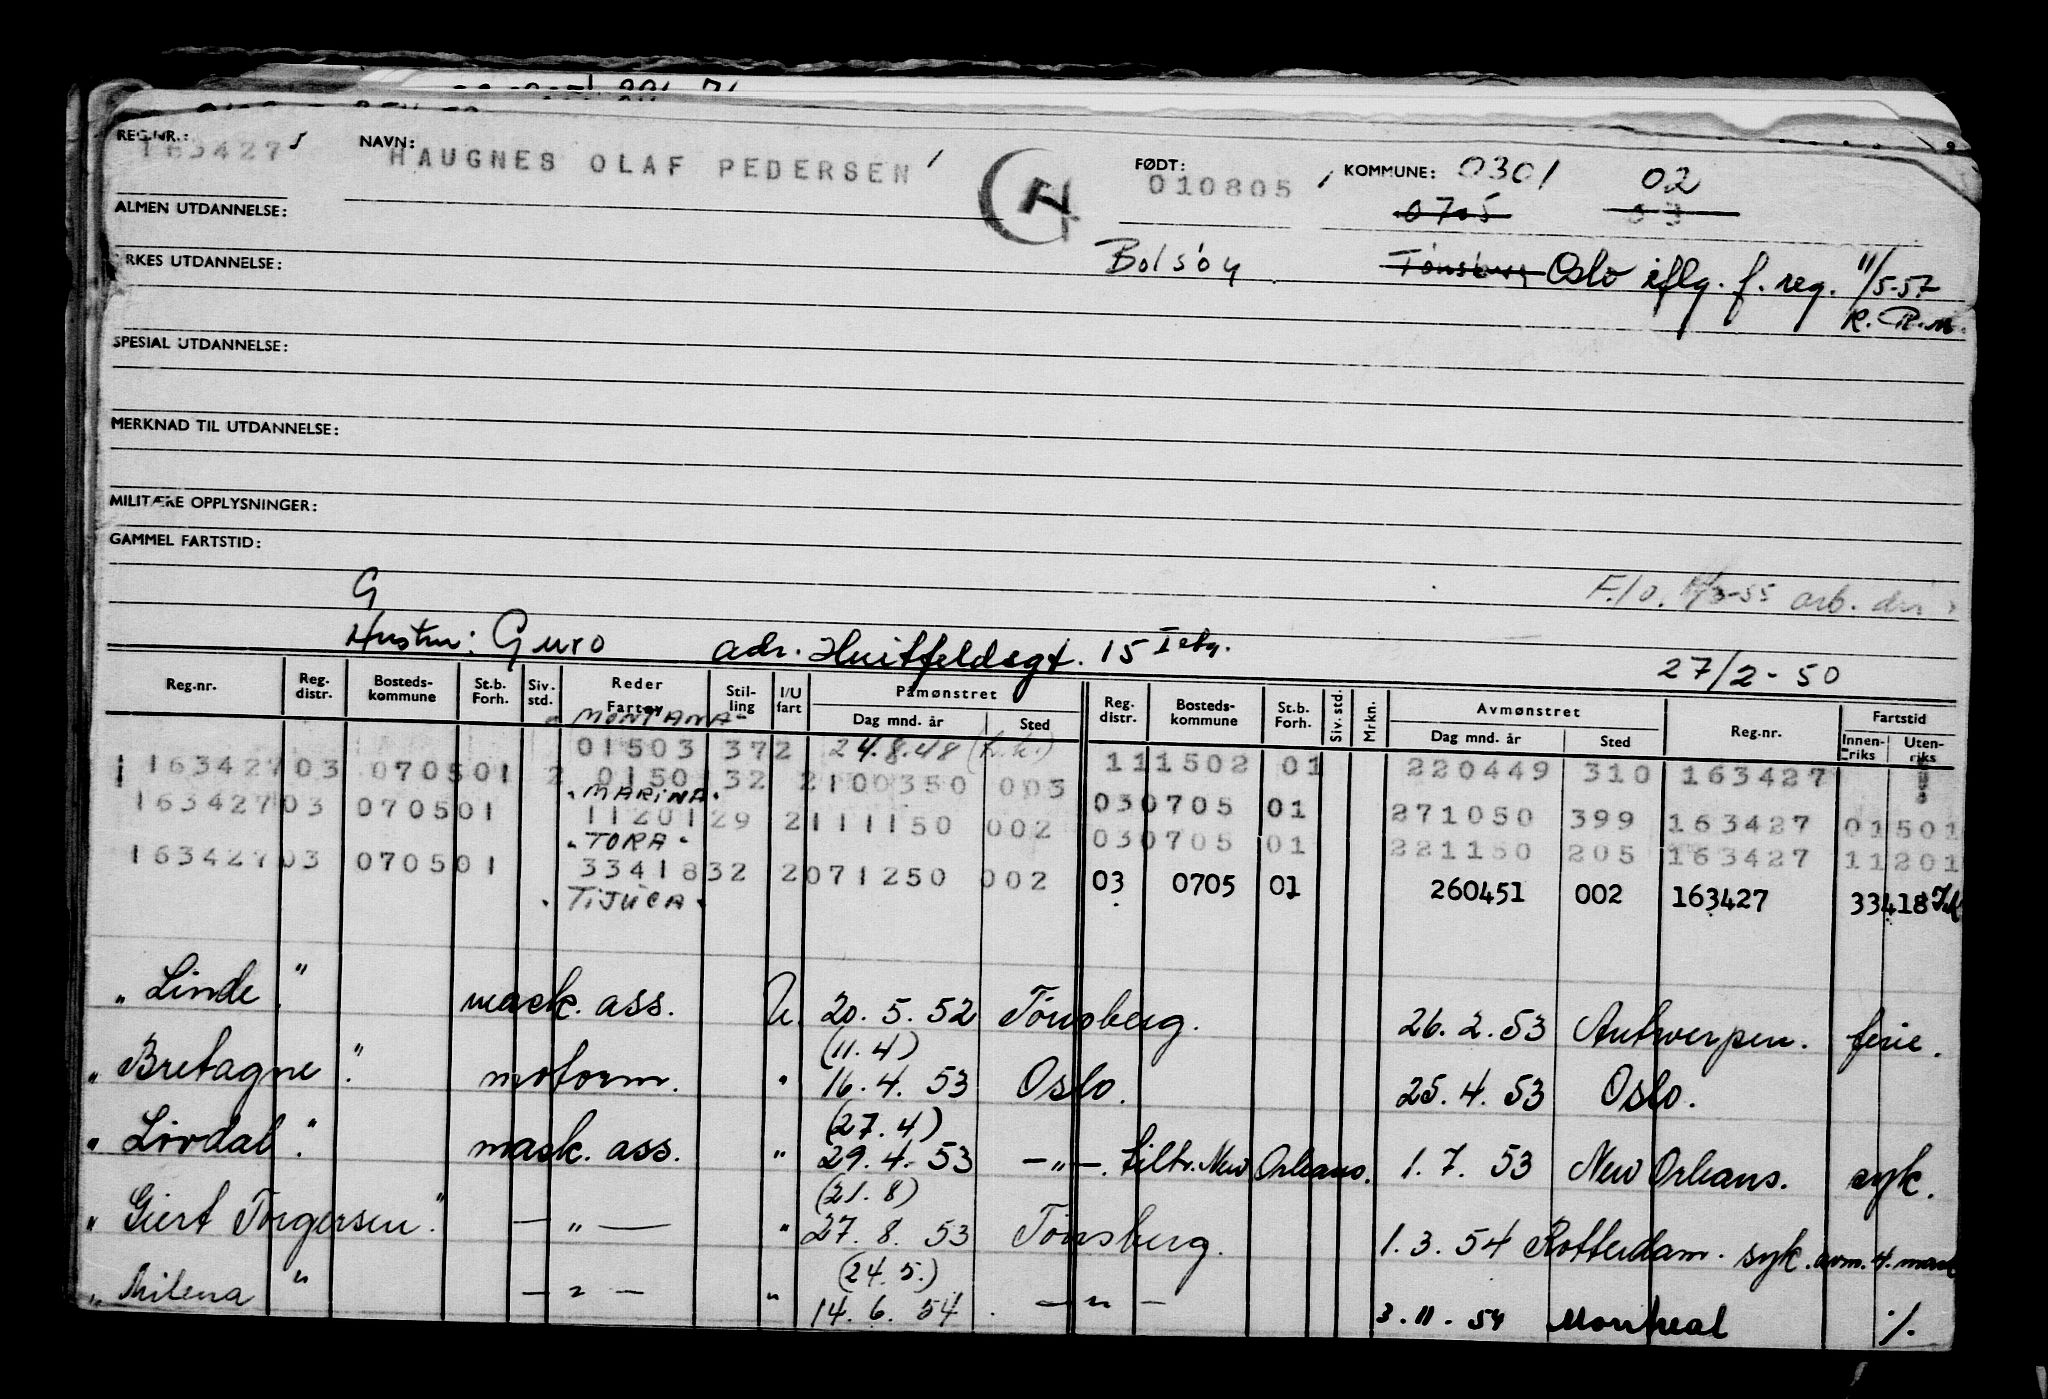 REG.NR.: 163427 NAVN: HAUGNES OLAF PEDERSEN FØDT: 010805 KOMMUNE: 0301 02
0705 03
ALMEN UTDANNELSE:
Bolsöy Tønsberg Oslo iflg. f. reg. 11/5-57
YRKES UTDANNELSE:
K. R. M.
SPESIAL UTDANNELSE:
MERKNAD TIL UTDANNELSE:
MILITÆRE OPPLYSNINGER:
GAMMEL FARTSTID:
G
F.l.o. /3-55 arb. dir
Hustru: Guro adr. Huitfeldsgt. 15 I etg. 27/2-50
Reg.nr. Reg. distr. Bosteds-kommune St.b. Forh. Siv. std. Reder Fartøy Stil-ling I/U fart Påmønstret Dag mnd. år Sted Reg. distr. Bosteds-kommune St.b. Forh. Siv. std. Mrkn. Avmønstret Dag mnd. år Sted Reg.nr. Fartstid Innen-riks Uten-riks
"MONTANA"
01503 372 24.8.48 (h.k.) 111502 01 220449 310 163427
163427 03 0705 01 2 0150 32 2 100350 003 030705 01 271050 399 163427 01501
"MARINA"
163427 03 0705 01 11201 29 2 111150 002 030705 01 221150 205 163427 11201
"TORA"
163427 03 0705 01 33418 32 2 071250 002 03 0705 01 260451 002 163427 33418
"TIJUCA"
"Linde" mask. ass. U. 20. 5. 52 Tönsberg. 26. 2. 53 Antwerpen. ferie.
(11. 4)
"Bretagne" motorm. " 16. 4. 53 Oslo. 25. 4. 53 Oslo.
(27. 4)
"Lövdal" mask. ass. " 29. 4. 53 —"—. tiltr. New Orleans. 1. 7. 53 New Orleans. syk.
(21. 8)
"Giert Torgersen" —"— " 27. 8. 53 Tönsberg. 1. 3. 54 Rotterdam. syk. avm. 4. mask
(24. 5.)
"Milena" —"— " 14. 6. 54 —"— 3. 11. 54 Montreal %.